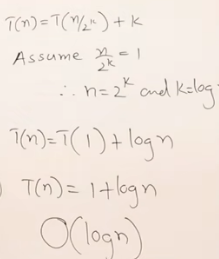 T(n)=T(n/2ⁿ)+k
Assume n/2ᵏ = 1
∴ n=2ᵏ and k=log
T(n)=T(1)+logn
T(n)= 1+logn
O(logn)